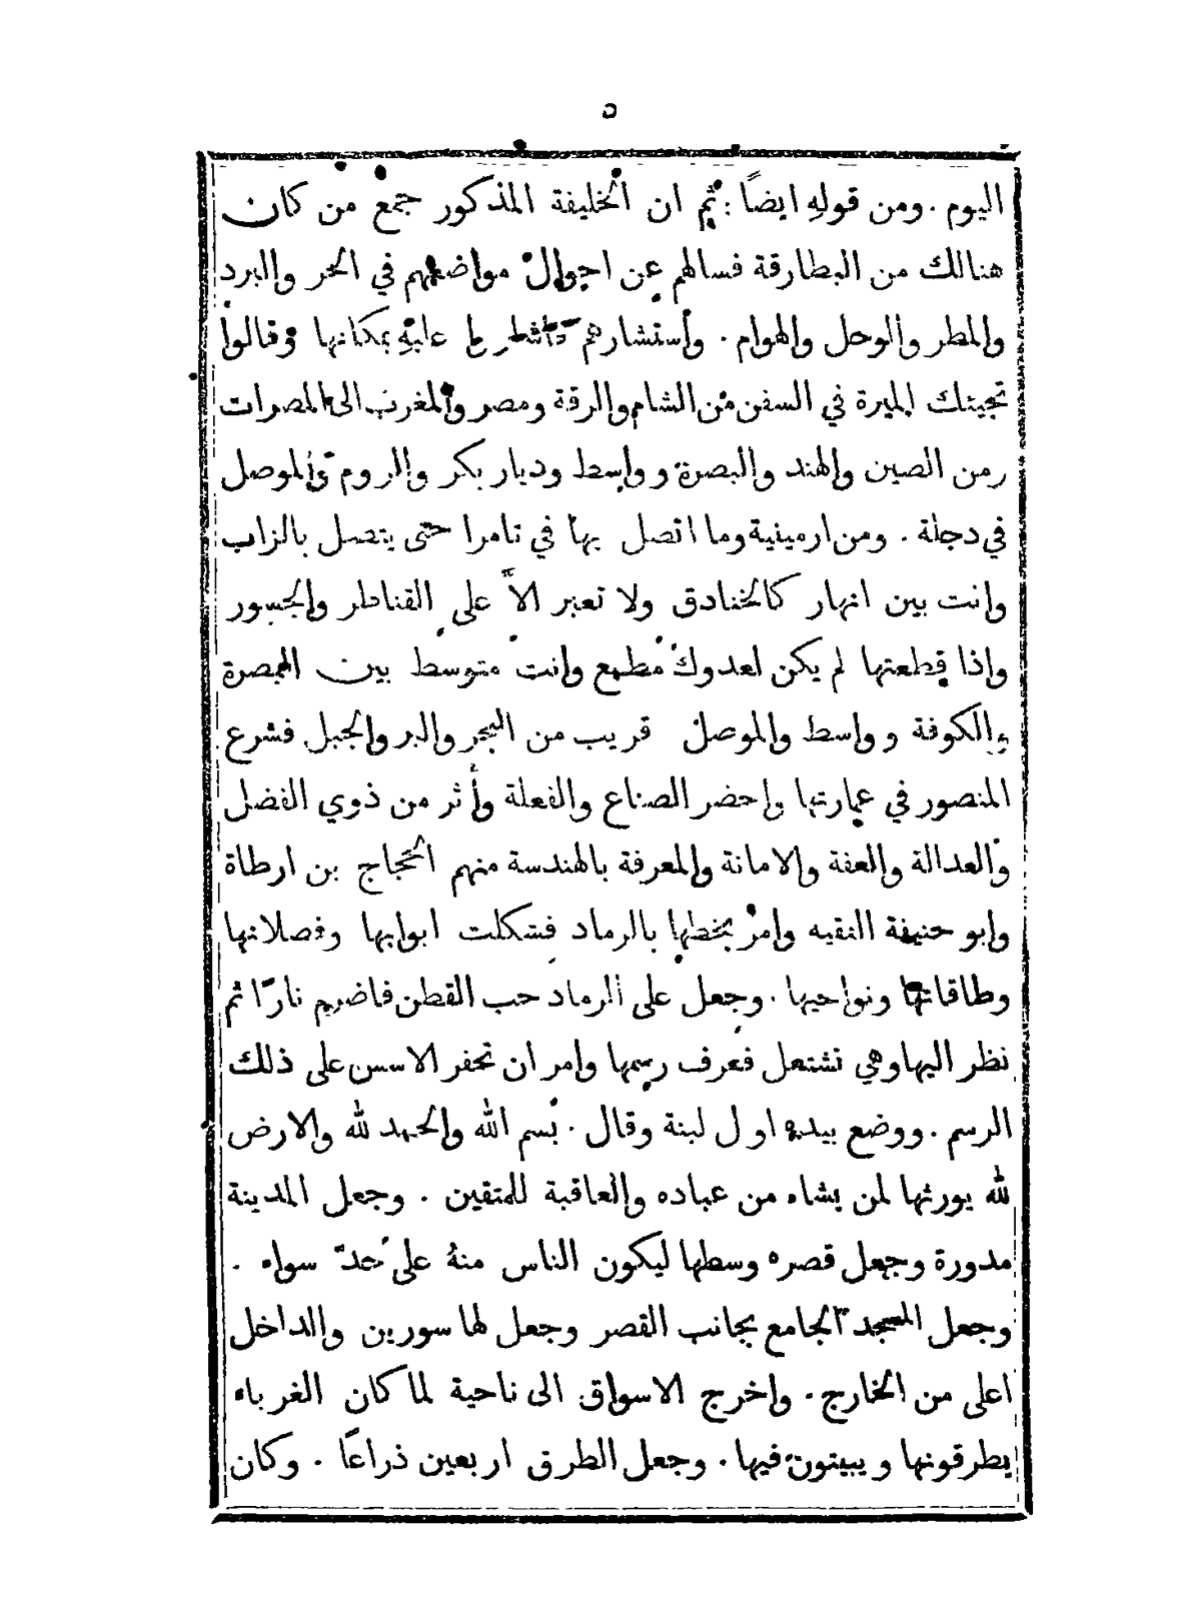 ٥
اليوم . ومن قولهِ ايضاً : ثم ان الخليفة المذكور جمع من كان
هنالك من البطارقة فسالهم عن احوال مواضعهم في الحر والبرد
والمطر والوحل والهوام . وأستشارهم عليهِ بمكانها وقالوا
تجيئك الميرة في السفن من الشام والرقة ومصر والمغرب الى المصرات
ومن الصين والهند والبصرة وواسط وديار بكر والروم والموصل
في دجلة . ومن ارمينية وما اتصل بها في تامرا حتى يتصل بالزاب
وانت بين انهار كالخنادق ولا تعبر الاَّ على القناطر والجسور
واذا قطعتها لم يكن لعدوك مطمع وانت متوسط بين البصرة
والكوفة وواسط والموصل قريب من البحر والبر والجبل فشرع
المنصور في عمارتها واحضر الصناع والفعلة وأثر من ذوي الفضل
والعدالة والعفة والامانة والمعرفة بالهندسة منهم الحجاج بن ارطاة
وابو حنيفة الفقيه وامر بخطها بالرماد فشكلت ابوابها وفصلاتها
وطاقاتها ونواحيها . وجعل على الرماد حب القطن فاضرم نارًا ثم
نظر اليها وهي تشتعل فعرف رسمها وامر ان تحفر الاسس على ذلك
الرسم . ووضع بيده اول لبنة وقال . بسم الله والحمد لله والارض
لله يورثها لمن يشاء من عباده والعاقبة للمتقين . وجعل المدينة
مدورة وجعل قصره وسطها ليكون الناس منهُ على حدّ سواء .
وجعل المسجد الجامع بجانب القصر وجعل لها سورين والداخل
اعلى من الخارج . واخرج الاسواق الى ناحية لما كان الغرباء
يطرقونها ويبيتون فيها . وجعل الطرق اربعين ذراعًا . وكان